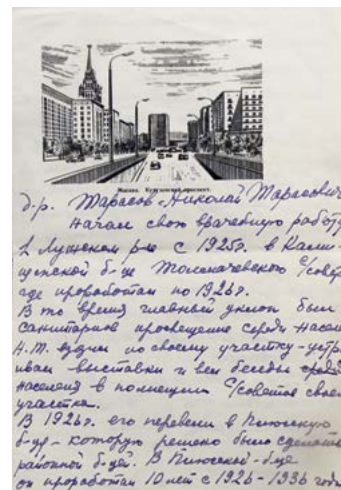 Москва. Кутузовский проспект.
д-р. Тарасов Николай Тарасович
начал свою врачебную работу
в Лужском р-не с 1925г. в
б-це Толмачевского с/совета
где проработал по 1926г.
В то время главный уклон был
санитарное просвещение среди населе
Н.Т. ездил по своему участку - устр
ивал выставки и вел беседы среди
населения в помещении с/советов своего
участка.
В 1926г. его перевели в
б-цу - которую решено было сделать
районной б-цей. В б-це
он проработал 10 лет с 1926 - 1936 годы